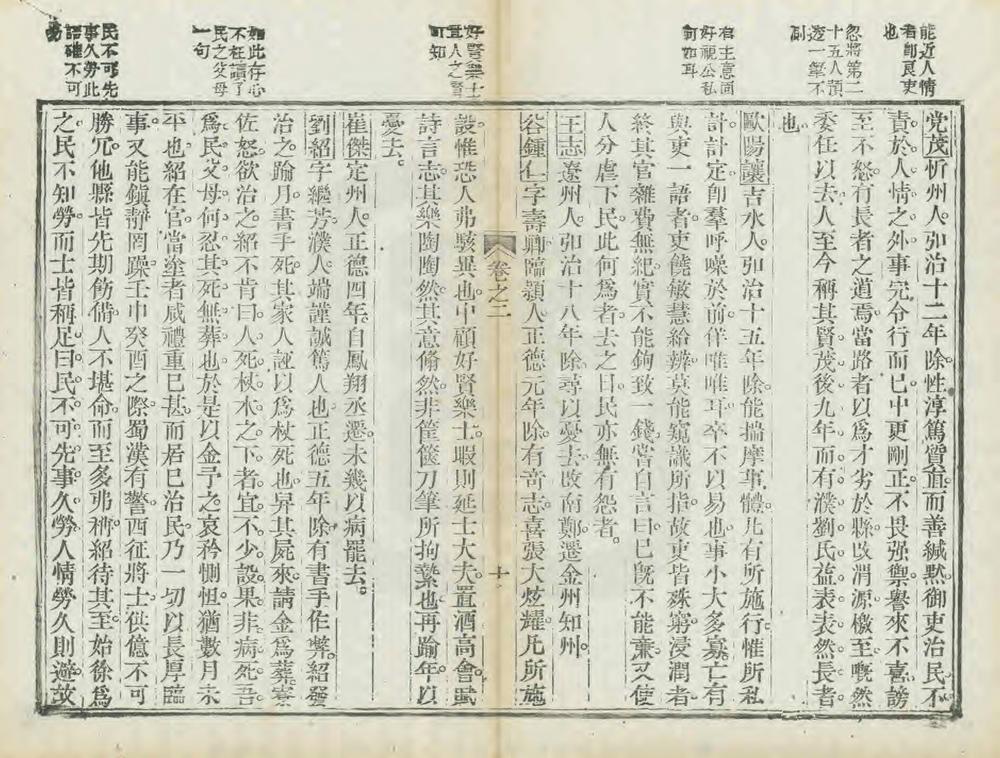 能近人情
者卽良吏
也
忽將第二
十五人預
遊一筆不
副
有主意同
好視公私
何如耳
好賢樂士
置人之賢
可知
如此存心
不枉讀了
民之父母
一句
民不可先
事久勞此
語確不可
易
党茂忻州人弘治十二年除性淳篤質直而善緘默御吏治民不
責於人情之外事完分行而已中更剛正不畏强禦譽來不喜謗
至不怒有長者之道焉當路者以爲才劣於縣改渭源檄至嘅然
委任以去人至今稱其賢茂後九年而有濮劉氏益表表然長者
也
歐陽讓吉水人弘治十五年除能揣摩事體凡有所施行惟所私
計計定卽羣呼噪於前佯唯唯耳卒不以易也事小大多寡亡有
與吏一語者吏饒敏慧給辨莫能窺識所指故吏皆殊窮浸潤者
終其官雜費無紀實不能鉤致一錢嘗自言曰已旣不能廉又使
人分虐下民此何爲者去之日民亦無有怨者
王志遼州人弘治十八年除尋以憂去改南鄭遷金州知州
谷鍾仁字壽卿臨潁人正德元年除有奇志喜張大炫耀凡所施
卷之二
十
設惟恐人弗駭異也中顧好賢樂士暇則延士大夫置酒高會賦
詩言志其樂陶陶然其意翛然非筐篋刀筆所拘縶也再踰年以
憂去
崔傑定州人正德四年自鳳翔丞遷未幾以病罷去
劉紹字繼芳濮人端謹誠篤人也正德五年除有書手作弊紹發
治之踰月書手死其家人誣以爲杖死也舁其屍來請金爲葬寮
佐怒欲治之紹不肯曰人死杖木之下者宜不少設果非病死吾
爲民父母何忍其死無葬也於是以金予之哀矜惻怛猶數月未
平也紹在官當塗者咸禮重已甚而居已治民乃一切以長厚臨
事又能鎭靜罔躁壬申癸酉之際蜀漢有警西征將士供億不可
勝冗他縣皆先期飭備人不堪命而至多弗稱紹待其至始徐爲
之民不知勞而士皆稱足曰民不可先事久勞人情勞久則避故